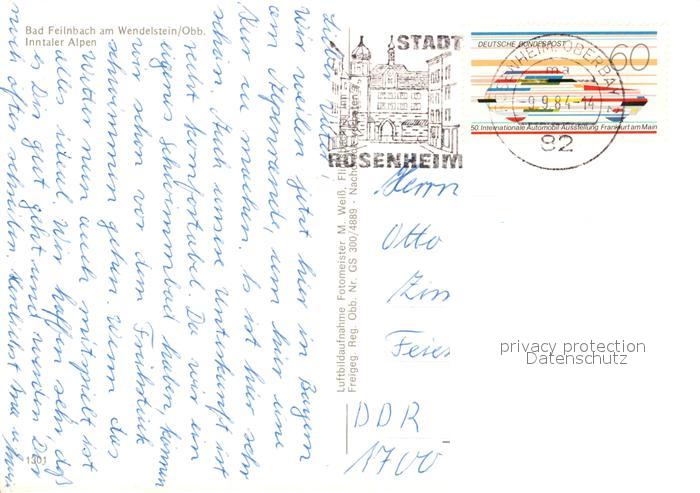 Bad Feilnbach am Wendelstein/Obb.
Inntaler Alpen
Lieber
wir sind jetzt hier in Bayern
am Alpenrand, um hier eine
Kur zu machen. Es ist hier sehr
schön. Auch unsere Unterkunft ist
recht komfortabel. Da wir ein
Schwimmbad haben, können
wir schon vor dem Frühstück
schwimmen gehen. Wenn das
Wetter auch mitspielt ist
alles ideal. Wir hoffen sehr, daß
es Dir gut geht und werden Dir
nun öfter schreiben. Herzlichst
1301
Luftbildaufnahme Fotomeister M. Weiß,
Freigeg. Reg. Obb. Nr. GS 300/4889 -
STADT
ROSENHEIM
DEUTSCHE BUNDESPOST
60
50. Internationale Automobil Ausstellung Frankfurt am Main
ROSENHEIM, OBERBAY
ma
-9.9.84-14
82
Herrn
Otto
DDR
1700
privacy protection
Datenschutz